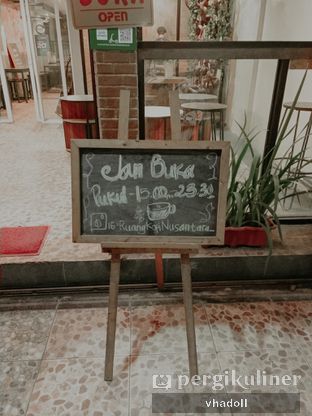 BUKA
OPEN
Jam Buka
Pukul - 15.00 - 23.30
IG Ruang Kopi Nusantara
pergikuliner
vhadoll